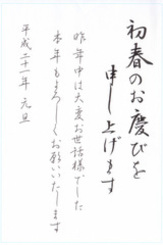 初春のお慶びを
申し上げます
昨年中は大変お世話様でした
本年もよろしくお願いいたします
平成二十一年 元旦